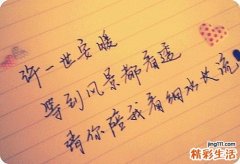 许一世安暖
等到风景都看透
请你陪我看细水长流
精彩生活